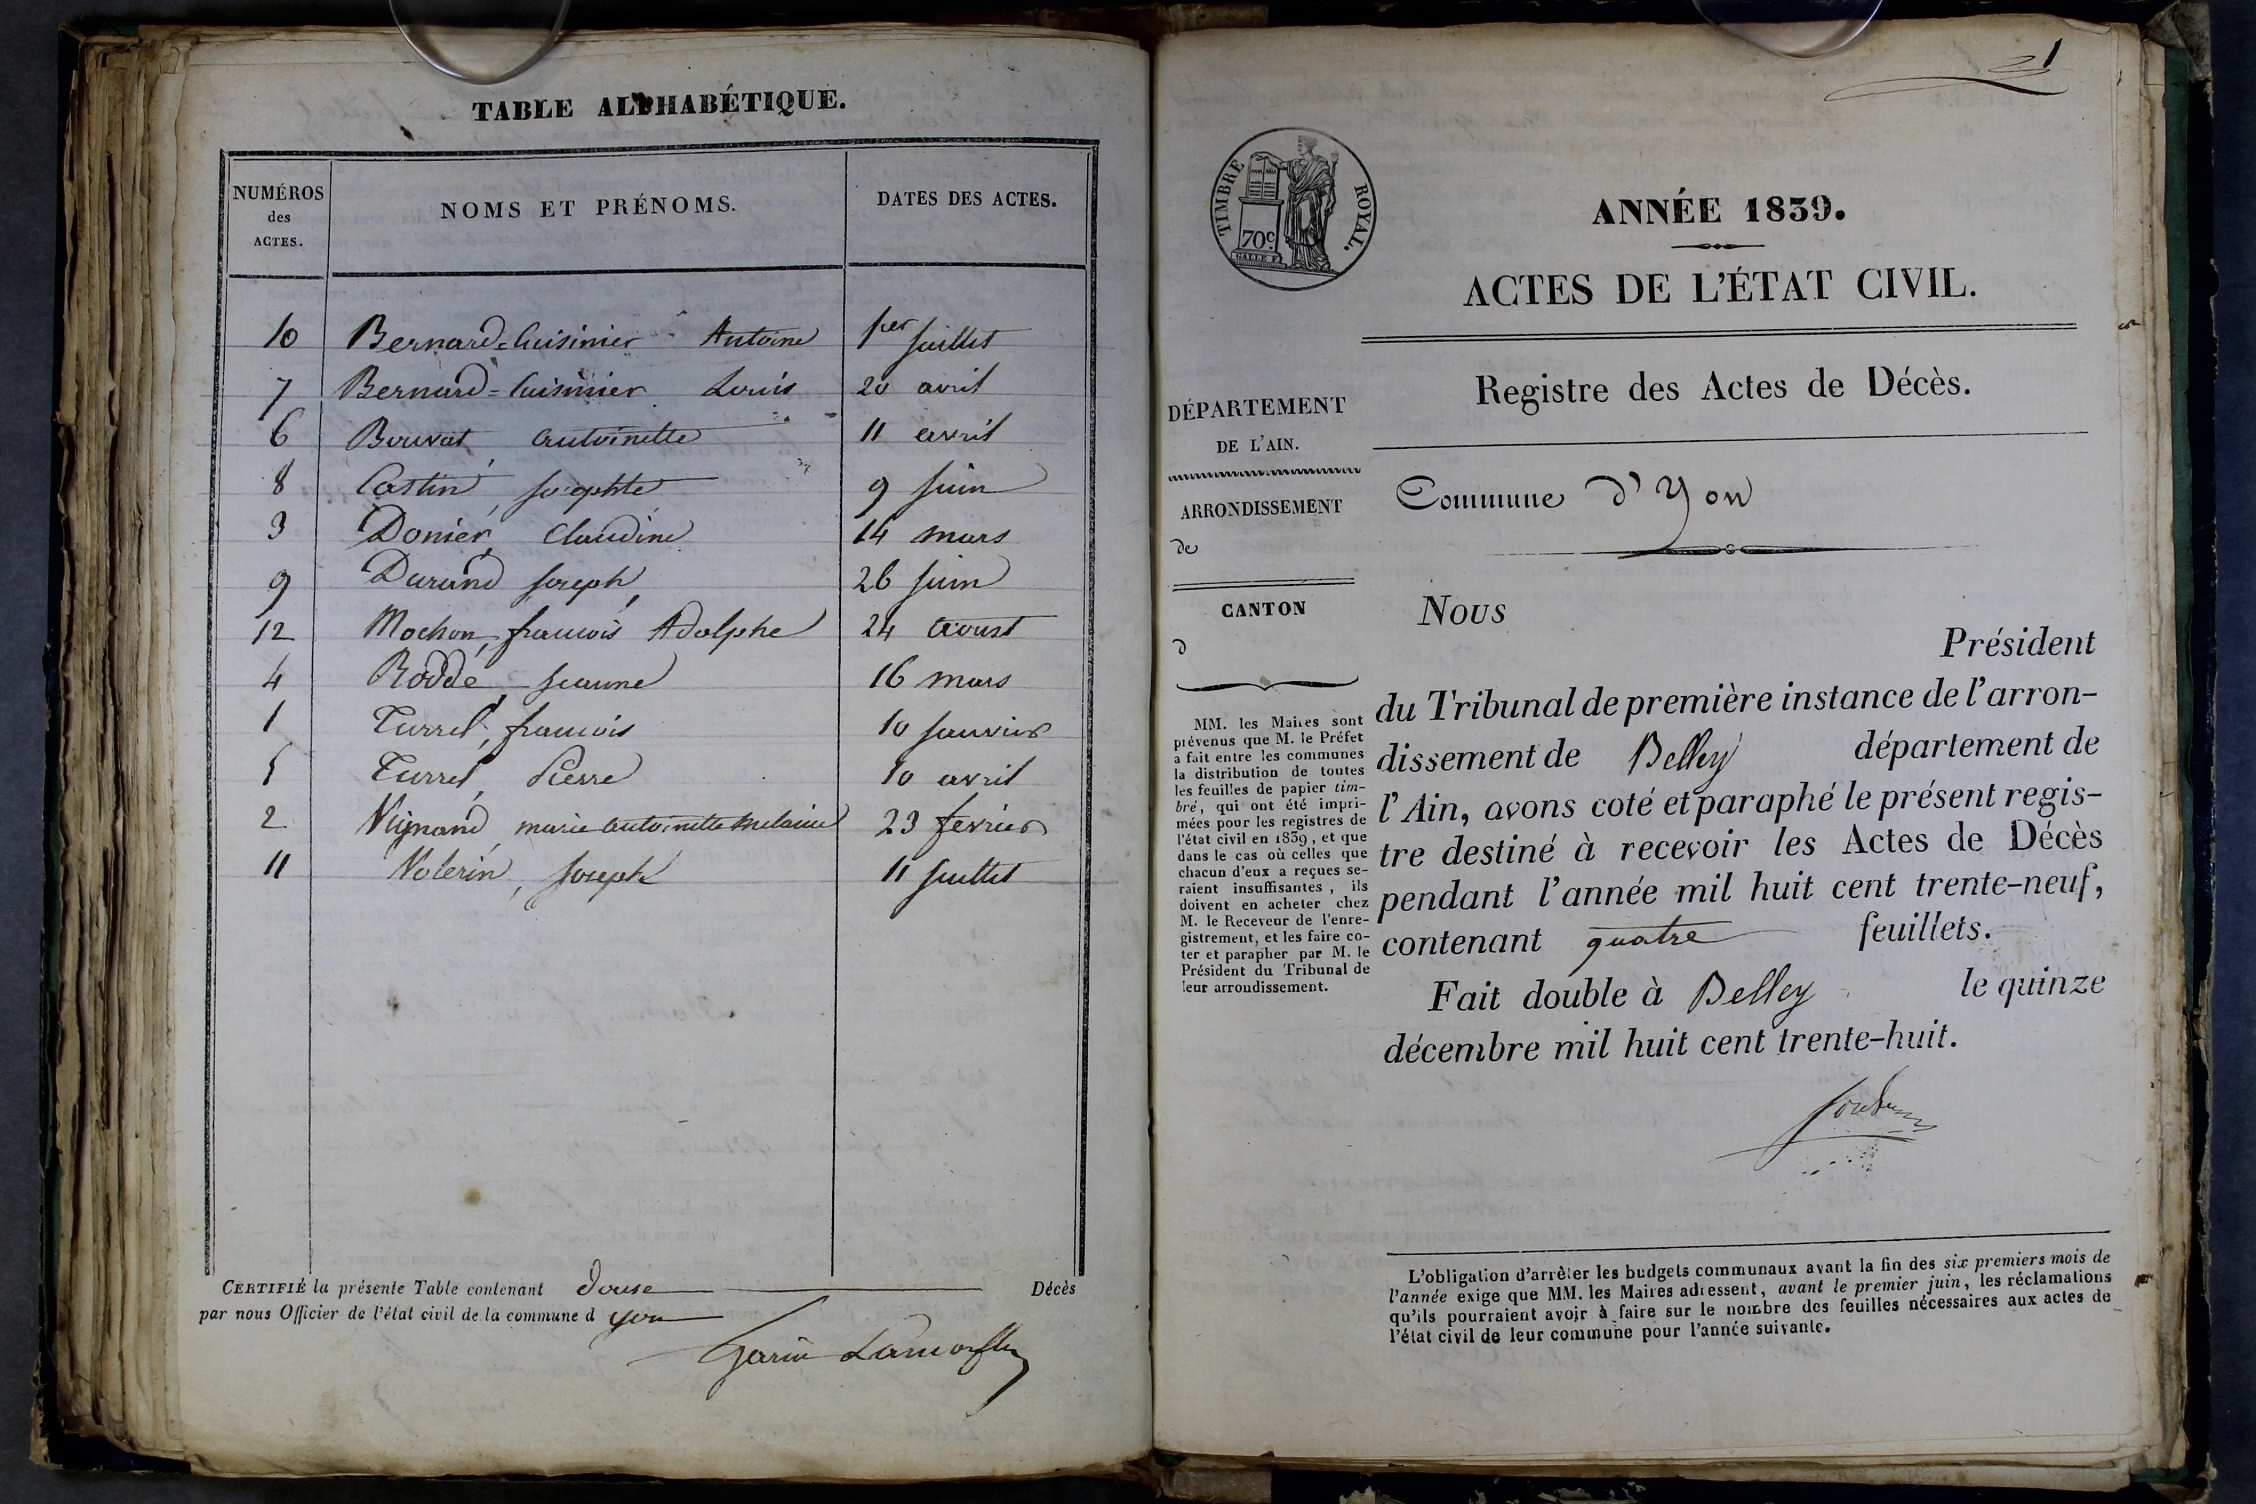 TABLE ALPHABÉTIQUE.
NUMÉROS des ACTES. NOMS ET PRÉNOMS. DATES DES ACTES.
10 Bernard=Cuisinier Antoine 1er Juillet
7 Bernard=Cuisinier Louis 20 avril
6 Bouvat, antoinette 11 avril
8 Castin, Josephte 9 Juin
3 Donier, Claudine 14 mars
9 Durand Joseph, 26 Juin
12 Mochon, francois Adolphe 24 Aoust
4 Roddé, Jeanne 16 mars
1 Turrel, francois 10 Janvier
5 Turrel, Pierre 10 avril
2 Vugnand, marie antoinette melanie 23 fevrier
11 Volerin, Joseph 11 Juillet
CERTIFIÉ la présente Table contenant douse Décès
par nous Officier de l'état civil de la commune d yon
1
TIMBRE ROYAL.
70c.
ANNÉE 1839.
ACTES DE L'ÉTAT CIVIL.
Registre des Actes de Décès.
DÉPARTEMENT
DE L'AIN.
ARRONDISSEMENT
de
CANTON
d
MM. les Maires sont
prévenus que M. le Préfet
a fait entre les communes
la distribution de toutes
les feuilles de papier tim-
bré, qui ont été impri-
mées pour les registres de
l'état civil en 1839, et que
dans le cas où celles que
chacun d'eux a reçues se-
raient insuffisantes, ils
doivent en acheter chez
M. le Receveur de l'enre-
gistrement, et les faire co-
ter et parapher par M. le
Président du Tribunal de
leur arrondissement.
Commune d'Yon
Nous
Président
du Tribunal de première instance de l'arron-
dissement de Belley département de
l'Ain, avons coté et paraphé le présent regis-
tre destiné à recevoir les Actes de Décès
pendant l'année mil huit cent trente-neuf,
contenant quatre feuillets.
Fait double à Belley le quinze
décembre mil huit cent trente-huit.
L'obligation d'arrêter les budgets communaux avant la fin des six premiers mois de
l'année exige que MM. les Maires adressent, avant le premier juin, les réclamations
qu'ils pourraient avoir à faire sur le nombre des feuilles nécessaires aux actes de
l'état civil de leur commune pour l'année suivante.